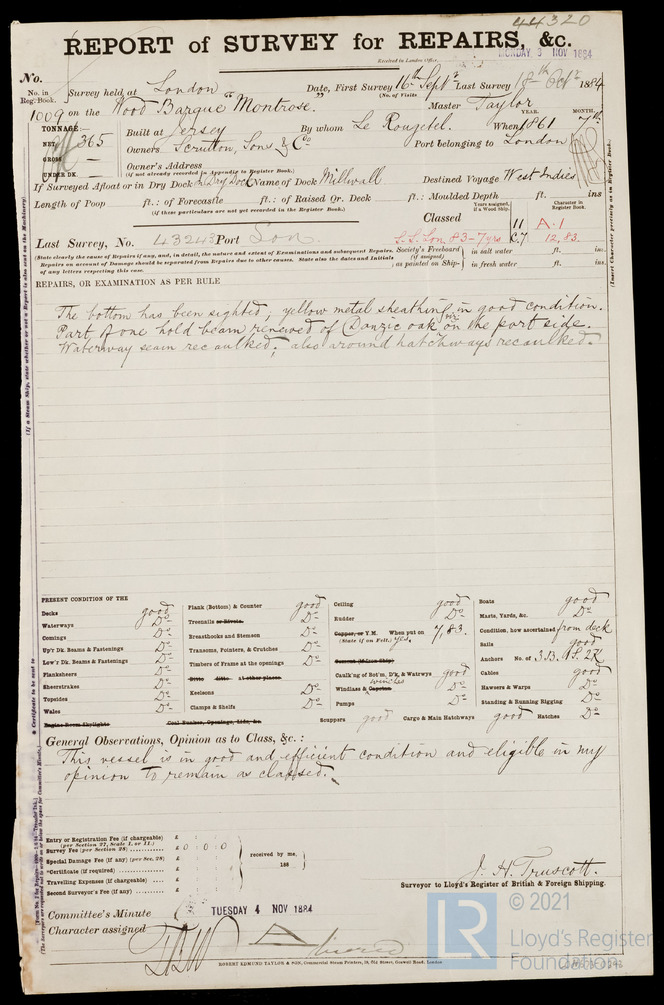 44320
REPORT of SURVEY for REPAIRS, &c.
Received in London Office, MONDAY 3 NOV 1884
No.
No. in Reg. Book. Survey held at London Date, First Survey 16th Sept Last Survey 18th Oct 1884
(No. of Visits
1009 on the Wood Barque "Montrose. Master Taylor
TONNAGE YEAR. MONTH.
NET 365 Built at Jersey By whom Le Rougetel. When 1861 7th
GROSS — Owners Scrutton, Son & Co Port belonging to London
UNDER DK. — Owner's Address
(if not already recorded in Appendix to Register Book.)
If Surveyed Afloat or in Dry Dock in Dry Dock Name of Dock Millwall Destined Voyage West Indies
Length of Poop ft.: of Forecastle ft.: of Raised Qr. Deck ft.: Moulded Depth ft. ins
(if these particulars are not yet recorded in the Register Book.)
Years assigned, if a Wood Ship. Character in Register Book.
Classed 11 A.1
Last Survey, No. 43243 Port Lon. S.S. Lon. 83-7yrs C.7. 12,83.
(State clearly the cause of Repairs if any, and, in detail, the nature and extent of Examinations and subsequent Repairs. Repairs on account of Damage should be separated from Repairs due to other causes. State also the dates and Initials of any letters respecting this case.
Society's Freeboard (if assigned) as painted on Ship- in salt water ft. ins.
in fresh water ft. ins.
REPAIRS, OR EXAMINATION AS PER RULE
The bottom has been sighted; yellow metal sheathing in good condition.
Part of one hold beam renewed of Danzic oak on the port side.
Waterway seam recaulked; also around hatchways recaulked.
PRESENT CONDITION OF THE
Decks good
Waterways Do
Comings Do
Up'r Dk. Beams & Fastenings Do
Low'r Dk. Beams & Fastenings Do
Planksheers Do
Sheerstrakes Do
Topsides Do
Wales Do
Engine Room Skylights
Plank (Bottom) & Counter good
Treenails or Rivets Do
Breasthooks and Stemson Do
Transoms, Pointers, & Crutches Do
Timbers of Frame at the openings Do
Ditto ditto at other places
Keelsons Do
Clamps & Shelfs Do
Coal Bunker, Openings, Lids, &c.
Ceiling good
Rudder Do
Copper, or Y.M. When put on 7,83.
(State if on Felt.) Yes.
Cement (if Iron Ship)
Caulk'ng of Bot'm, D'k, & Watrwys good
winches
Windlass & Capstan Do
Pumps Do
Scuppers good Cargo & Main Hatchways good Hatches Do
Boats good
Masts, Yards, &c. Do
Condition, how ascertained from deck
Sails good
Anchors No. of 3B. 1S. 2K
Cables good
Hawsers & Warps Do
Standing & Running Rigging Do
General Observations, Opinion as to Class, &c. :
This vessel is in good and efficient condition and eligible in my
opinion to remain as classed.
Entry or Registration Fee (if chargeable) £
(per Section 27, Scale 1. or 11.)
Survey Fee (per Section 28) £ 0 . 0 . 0
Special Damage Fee (if any) (per Sec. 28) £
*Certificate (if required) £
Travelling Expenses (if chargeable) £
Second Surveyor's Fee (if any) £
received by me,
188
J. H. Truscott.
Surveyor to Lloyd's Register of British & Foreign Shipping.
Committee's Minute TUESDAY 4 NOV 1884
Character assigned
ROBERT EDMUND TAYLOR & SON, Commercial Steam Printers, 19, Old Street, Goswell Road, London
LR
© 2021
Lloyd's Register
Foundation